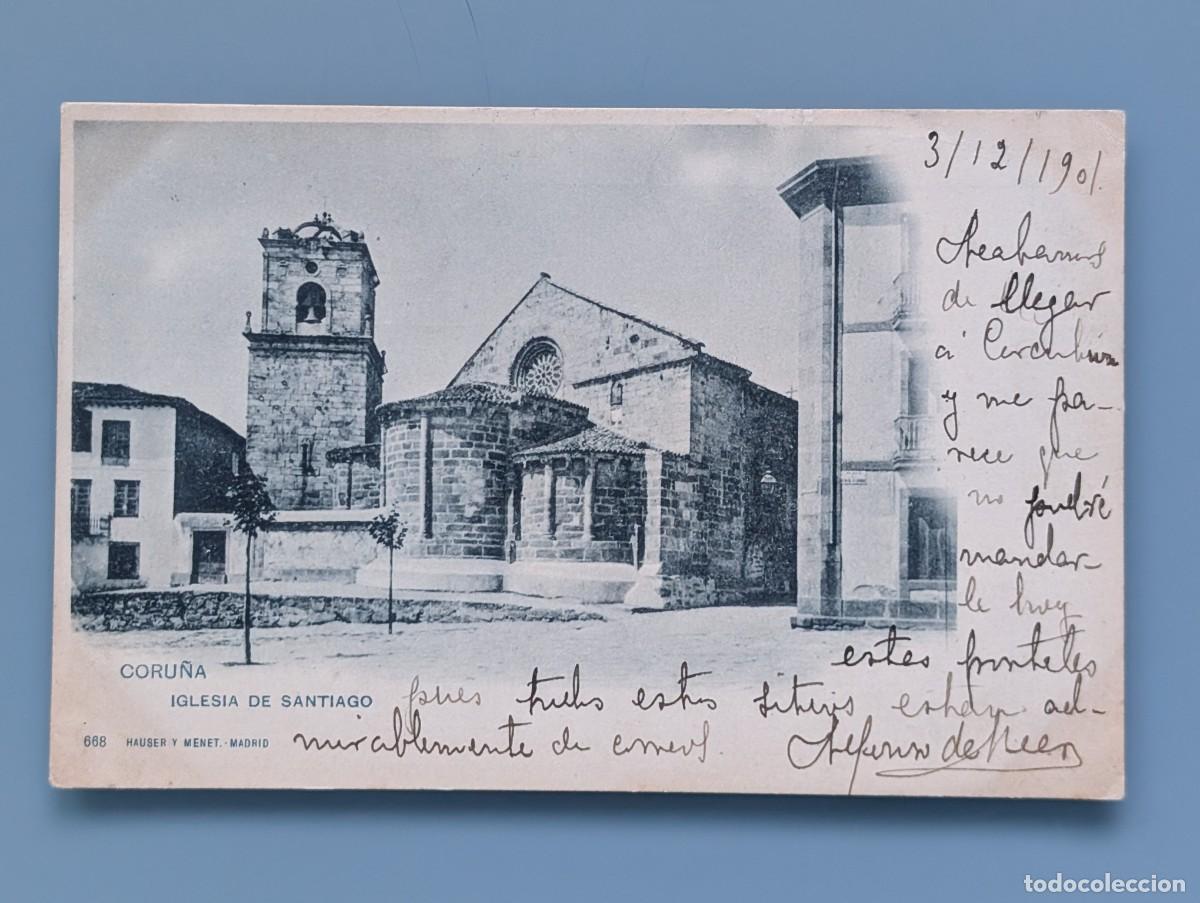 3/12/901.
Acabamos
de llegar
á Corcubión
y me pa-
rece que
no podré
mandar-
le hoy
estes
pues todos estos sitios están ad-
mirablemente de correos.
CORUÑA
IGLESIA DE SANTIAGO
668 HAUSER Y MENET.-MADRID
todocoleccion